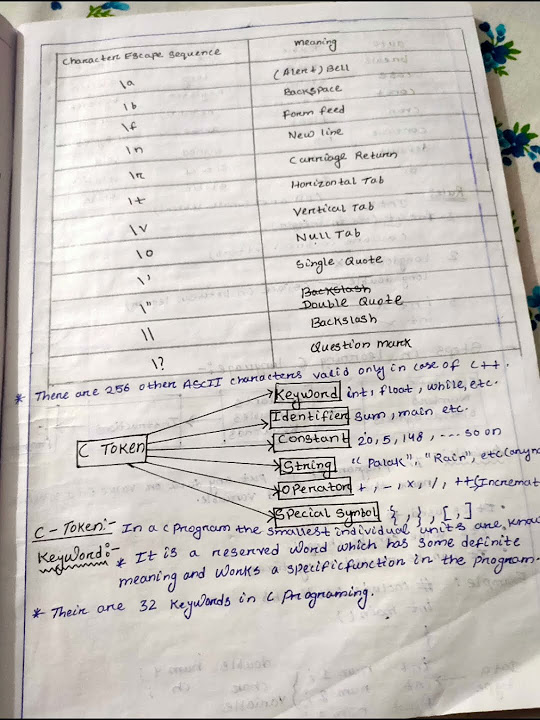 Character Escape Sequence meaning
\a (Alert) Bell
\b Backspace
\f Form feed
\n New line
\r Carriage Return
\t Horizontal Tab
\v Vertical Tab
\0 Null Tab
\' Single Quote
Backslash
\" Double Quote
\\ Backslash
\? Question mark
* There are 256 other ASCII characters valid only in case of C++.
C Token
Keyword int, float, while, etc.
Identifier sum, main etc.
Constant 20, 5, 148, ---- so on
String "Palak", "Rain", etc
Operator +, -, x, /, ++
Special symbol {, }, [, ]
C-Token:- In a C program the smallest individual units are
Keyword:-
* It is a reserved word which has some definite
meaning and works a specific function in the program.
* Their are 32 Keywords in C Programing.